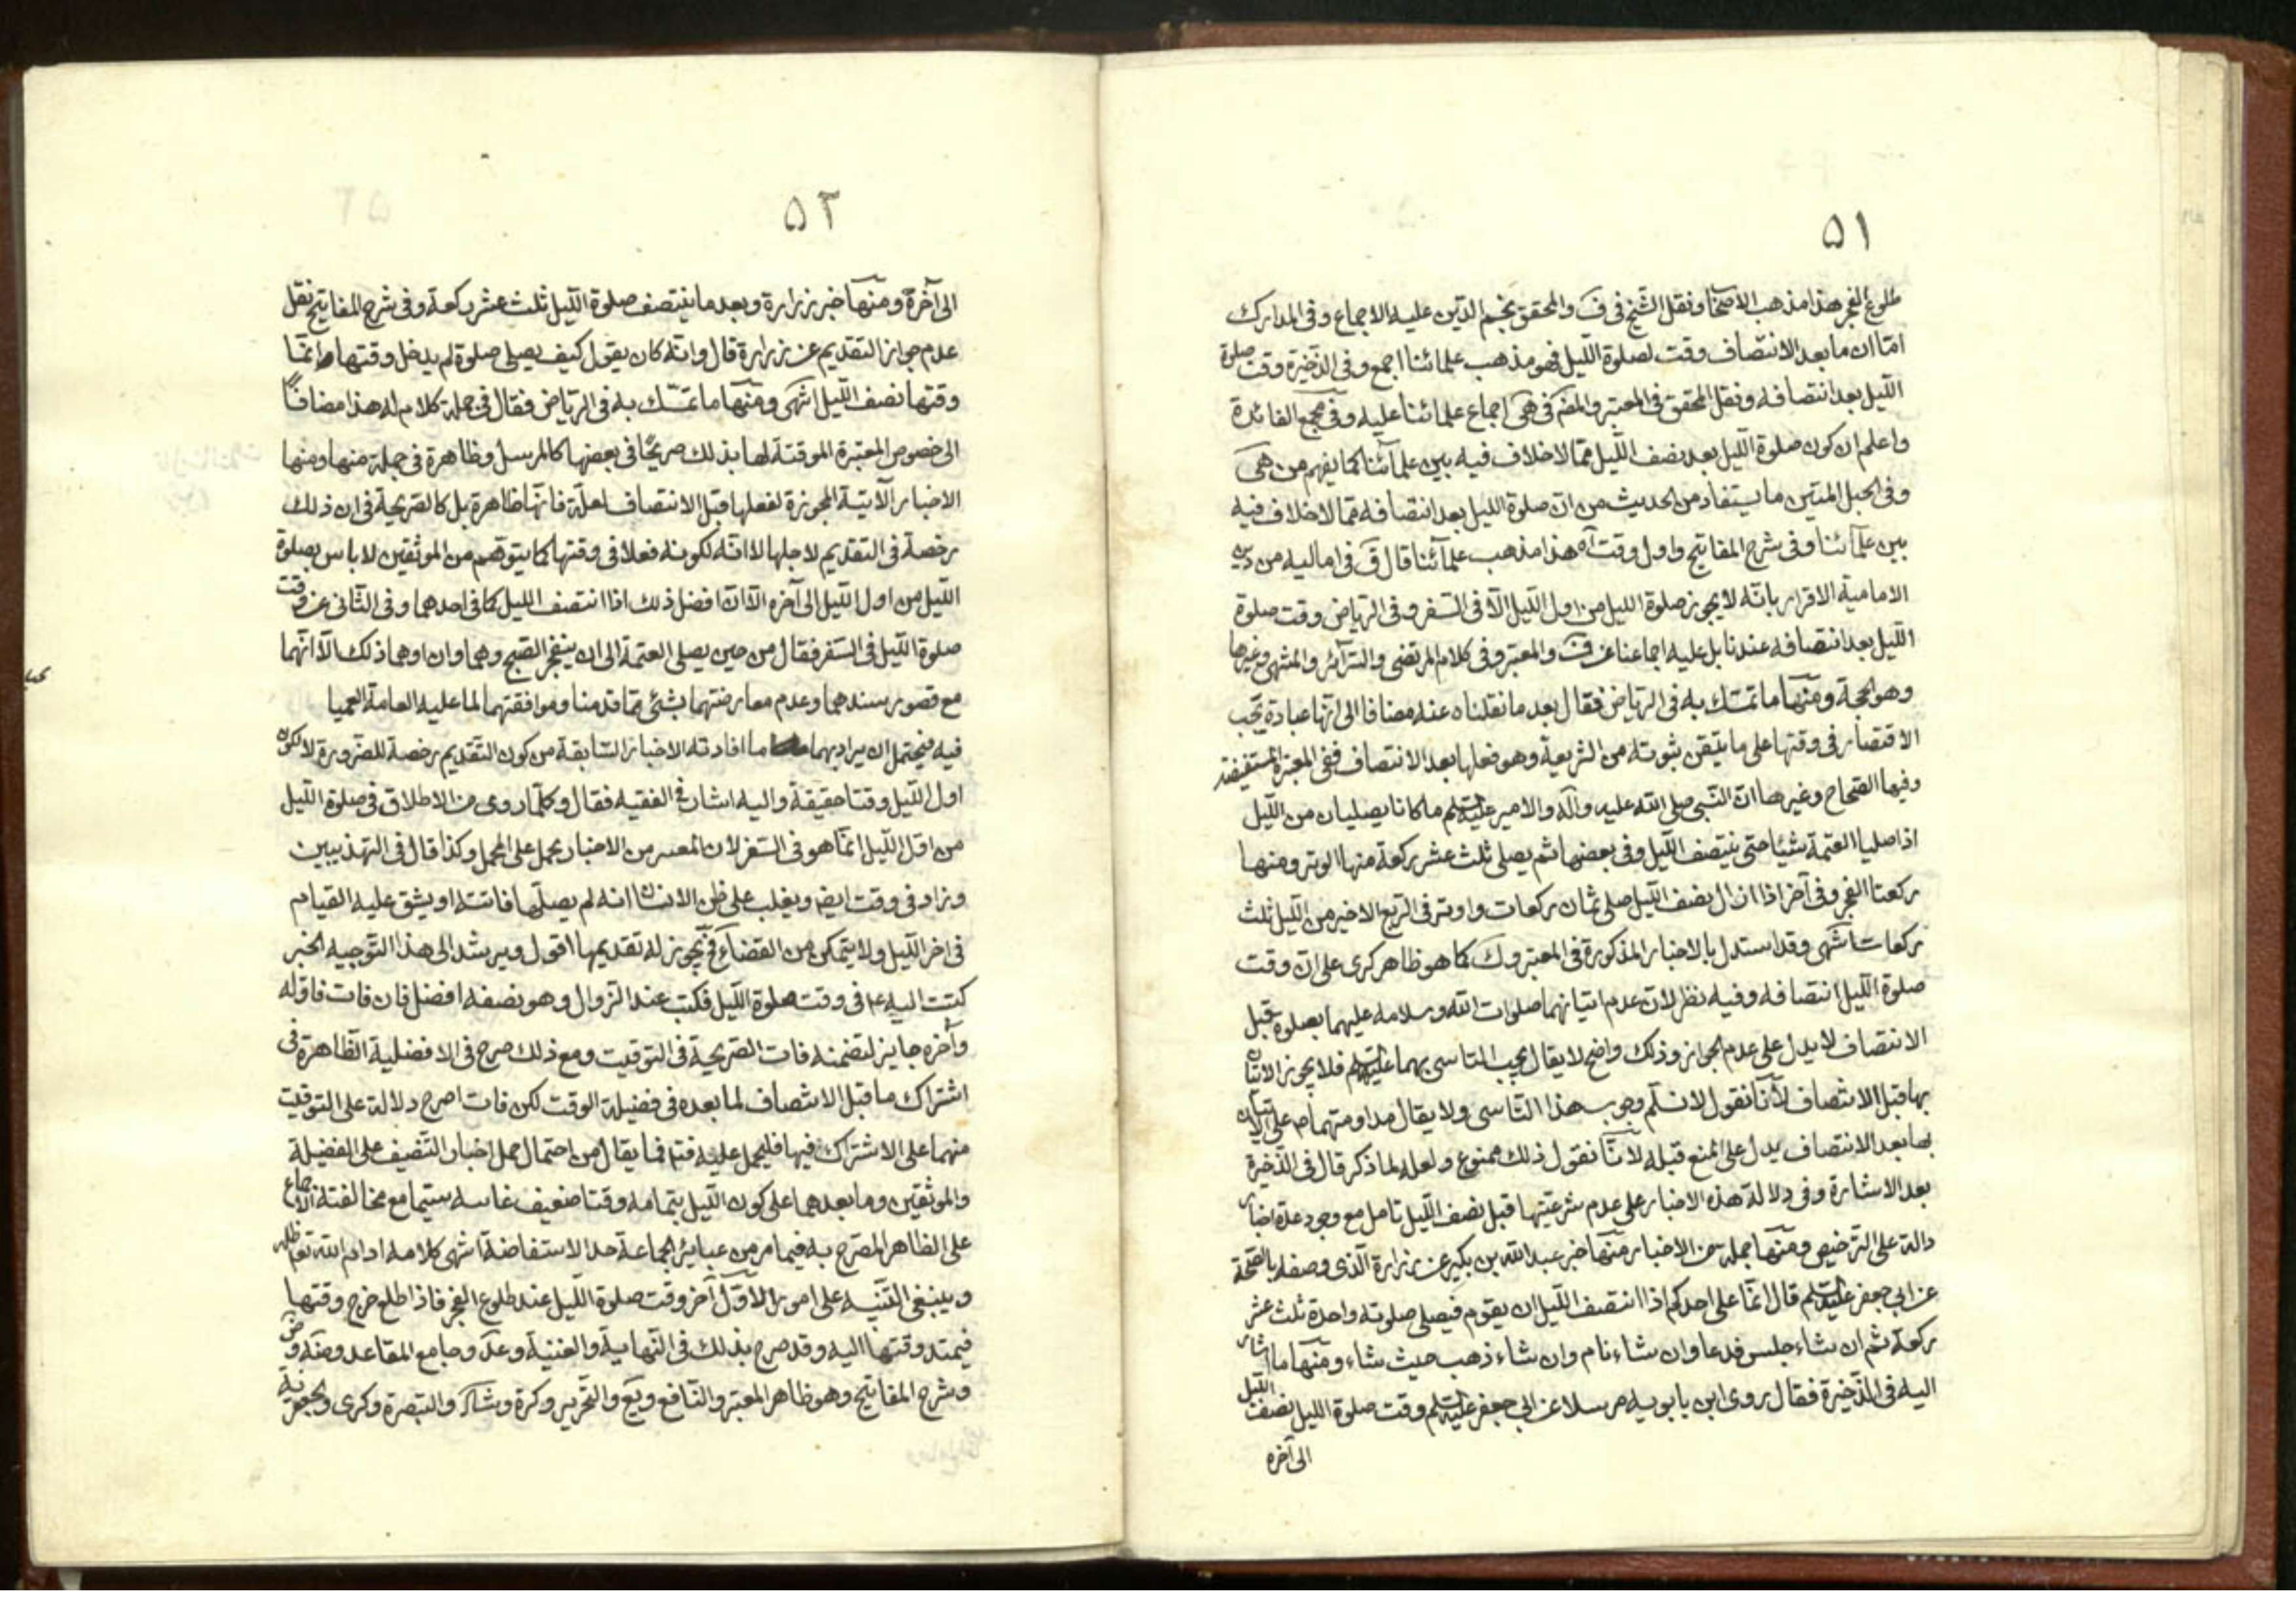 ٥١
طلوع الفجر هذا مذهب الاصحاب و نقل الشيخ في ف والمحقق نجم الدين عليه الاجماع وفى المدارك
امّا ان ما بعد الانتصاف وقت لصلوة الليل فهو مذهب علمائنا اجمع وفى الذخيرة وقت صلوة
الليل بعد انتصافه ونقل المحقق فى المعتبر والمضم فى هى اجماع علمائنا عليه وفى مجمع الفائدة
واعلم ان كون صلوة الليل بعد نصف الليل ممّا لا خلاف فيه بين علمآئنا كما يفهم من هى
وفى الحبل المتين ما يستفاد من الحديث من انّ صلوة الليل بعد انتصافه ممّا لا خلاف فيه
بين علمآئنا وفى شرح المفاتيح واول وقت آه هذا مذهب علمآئنا قال ق فى اماليه من دين
الامامية الاقرار بانّه لا يجوز صلوة الليل من اول الليل الّا فى السفر وفى الرياض وقت صلوة
الليل بعد انتصافه عندنا بل عليه اجماعنا عن ف والمعتبر وفى كلام المرتضى والسرآئر والمنتهى وغيرها
وهو الحجة ومنها ما تمسّك به فى الرياض فقال بعد ما نقلناه عنه مضافا الى انّها عبادة يجب
الاقتصار فى وقتها على ما يتيقن ثبوته من الشريعة وهو فعلها بعد الانتصاف ففى المعتبرة المستفيضة
وفيها الصحاح وغيرها انّ النّبى صلى الله عليه وآله والامير عليه السلم ما كانا يصليان من الليل
اذا صليا العتمة شيئا حتى ينتصف الليل وفى بعضها ثم يصلى ثلث عشر ركعة منها الوتر ومنها
ركعتا الفجر وفى آخر اذا زال نصف الليل صلى ثمان ركعات واوتر فى الربع الاخير من الليل ثلث
ركعات انتهى وقد استدل بالاخبار المذكورة فى المعتبر و ك كما هو ظاهر كرى على انّ وقت
صلوة الليل انتصافه وفيه نظر لانّ عدم اتيانهما صلوات الله وسلامه عليهما بصلوة قبل
الانتصاف لا يدل على عدم الجواز وذلك واضح لا يقال يجب التاسى بهما عليهما السلم فلا يجوز الاتيان
بها قبل الانتصاف لأنّا نقول لا نسلم وجوب هذا التأسى ولا يقال مداومتهما م على الاتيان
بها بعد الانتصاف يدل على المنع قبله لانّا نقول ذلك ممنوع ولعله لما ذكر قال فى الذخيرة
بعد الاشارة وفى دلالة هذه الاخبار على عدم شرعيتها قبل نصف الليل تامل مع وجود عدة اخبار
دالة على الترخيص ومنها جملة من الاخبار منها خبر عبد الله بن بكير عن زرارة الّذى وصفه بالصحة
عن ابى جعفر عليه السلم قال انّما على احدكم اذا انتصف الليل ان يقوم فيصلى صلوته واحدة ثلث عشر
ركعة ثم ان شاء جلس فدعا وان شاء نام وان شاء ذهب حيث شاء ومنها ما اشار
اليه فى الذّخيرة فقال روى ابن بابويه مرسلا عن ابى جعفر عليه السلم وقت صلوة الليل نصف الليل
الى آخره
٥٢
الى آخرة ومنها خبر زرارة وبعد ما ينتصف صلوة الليل ثلث عشر ركعة وفى شرح المفاتيح نقل
عدم جواز التقديم عن زرارة قال وانّه كان يقول كيف يصلى صلوة لم يدخل وقتها وانّما
وقتها نصف الليل انتهى ومنها ما تمسّك به فى الرياض فقال فى جملة كلام له هذا مضافًا
الى خصوص المعتبرة الموقتة لها بذلك صريحًا فى بعضها كالمرسل وظاهرة فى جملة منها ومنها
الاخبار الآتية المجوزة لفعلها قبل الانتصاف لعلّة فانّها ظاهرة بل كالصريحة فى ان ذلك
رخصة فى التقديم لاجلها لا انّه لكونه فعلا فى وقتها كما يتوهم من الموثقين لا باس بصلوة
الليل من اول الليل الى آخره الّا انّ افضل ذلك اذا انتصف الليل كما فى احدهما وفى الثانى عن وقت
صلوة الليل فى السفر فقال من حين يصلى العتمة الى ان ينفجر الصبح وهما وان اوهما ذلك الّا انّهما
مع قصور سندهما وعدم معارضتهما بشئ ممّا قدمنا وموافقتهما لما عليه العامة العميا
فيه فيحتمل ان يراد بهما ما افادته الاخبار السّابقة من كون التقديم رخصة للضرورة لا لكون
اول الليل وقتا حقيقة واليه اشار فى الفقيه فقال وكلّما روى من الاطلاق فى صلوة الليل
من اول الليل انّما هو فى السفر لان المفسر من الاخبار يحمل على المجمل وكذا قال فى التهذيبين
وزاد فى وقت ايضا ويغلب على ظن الانسان انه لم يصلّها فاتته او يشق عليه القيام
فى اخر الليل ولا يتمكن من القضاء فح يجوز له تقديمها اقول ويرشد الى هذا التّوجيه الخبر
كتبت اليه ع فى وقت صلوة الليل فكتب عند الزوال وهو نصفه افضل فان فات فاوّله
وآخره جايز لتضمنه فات الصريحة فى التوقيت ومع ذلك صرح فى الافضلية الظاهرة فى
اشتراك ما قبل الانتصاف لما بعده فى فضيلة الوقت لكن فات اصرح دلالة على التوقيت
منهما على الاشتراك فيها فليحمل عليه فتم فما يقال من احتمال حمل اخبار التنصيف على الفضيلة
والموثقين وما بعدهما على كون الليل بتمامه وقتا ضعيف غايته سيّما مع مخالفته الاجماع
على الظاهر المصرح به فيما مر من عباير الجماعة حد الاستفاضة انتهى كلامه ادام الله تعا ظله
وينبغى التنبيه على امور الاوّل آخر وقت صلوة الليل عند طلوع الفجر فاذا طلع خرج وقتها
فيمتد وقتها اليه وقد صرح بذلك فى النهاية والغنية وعد وجامع المقاصد وضه وض
وشرح المفاتيح وهو ظاهر المعتبر والنافع ويع والتحرير وكرة وشاد والتبصرة وكرى والجعفرية